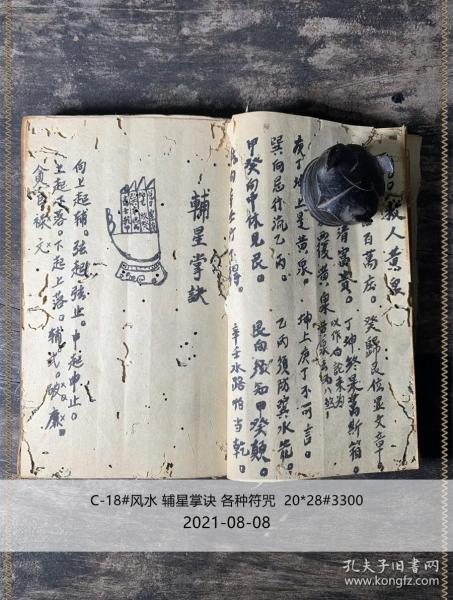 救人黄泉
百萬庄。癸歸艮位显文章
富貴。丁坤終是萬斯箱。
庚丁坤上是黄泉。坤上庚丁不可言。
巽向忌行流乙丙。乙丙須防巽水
甲癸向中休見艮。艮向須知甲癸
不得。辛壬水路怕当乾。
輔星掌訣
向上起輔。弦起弦止。中起中止。
上起下落。下起上落。輔武。破廉
貪巨祿文。
C-18#风水 辅星掌诀 各种符咒 20*28#3300
2021-08-08
孔夫子旧书网
www.kongfz.com